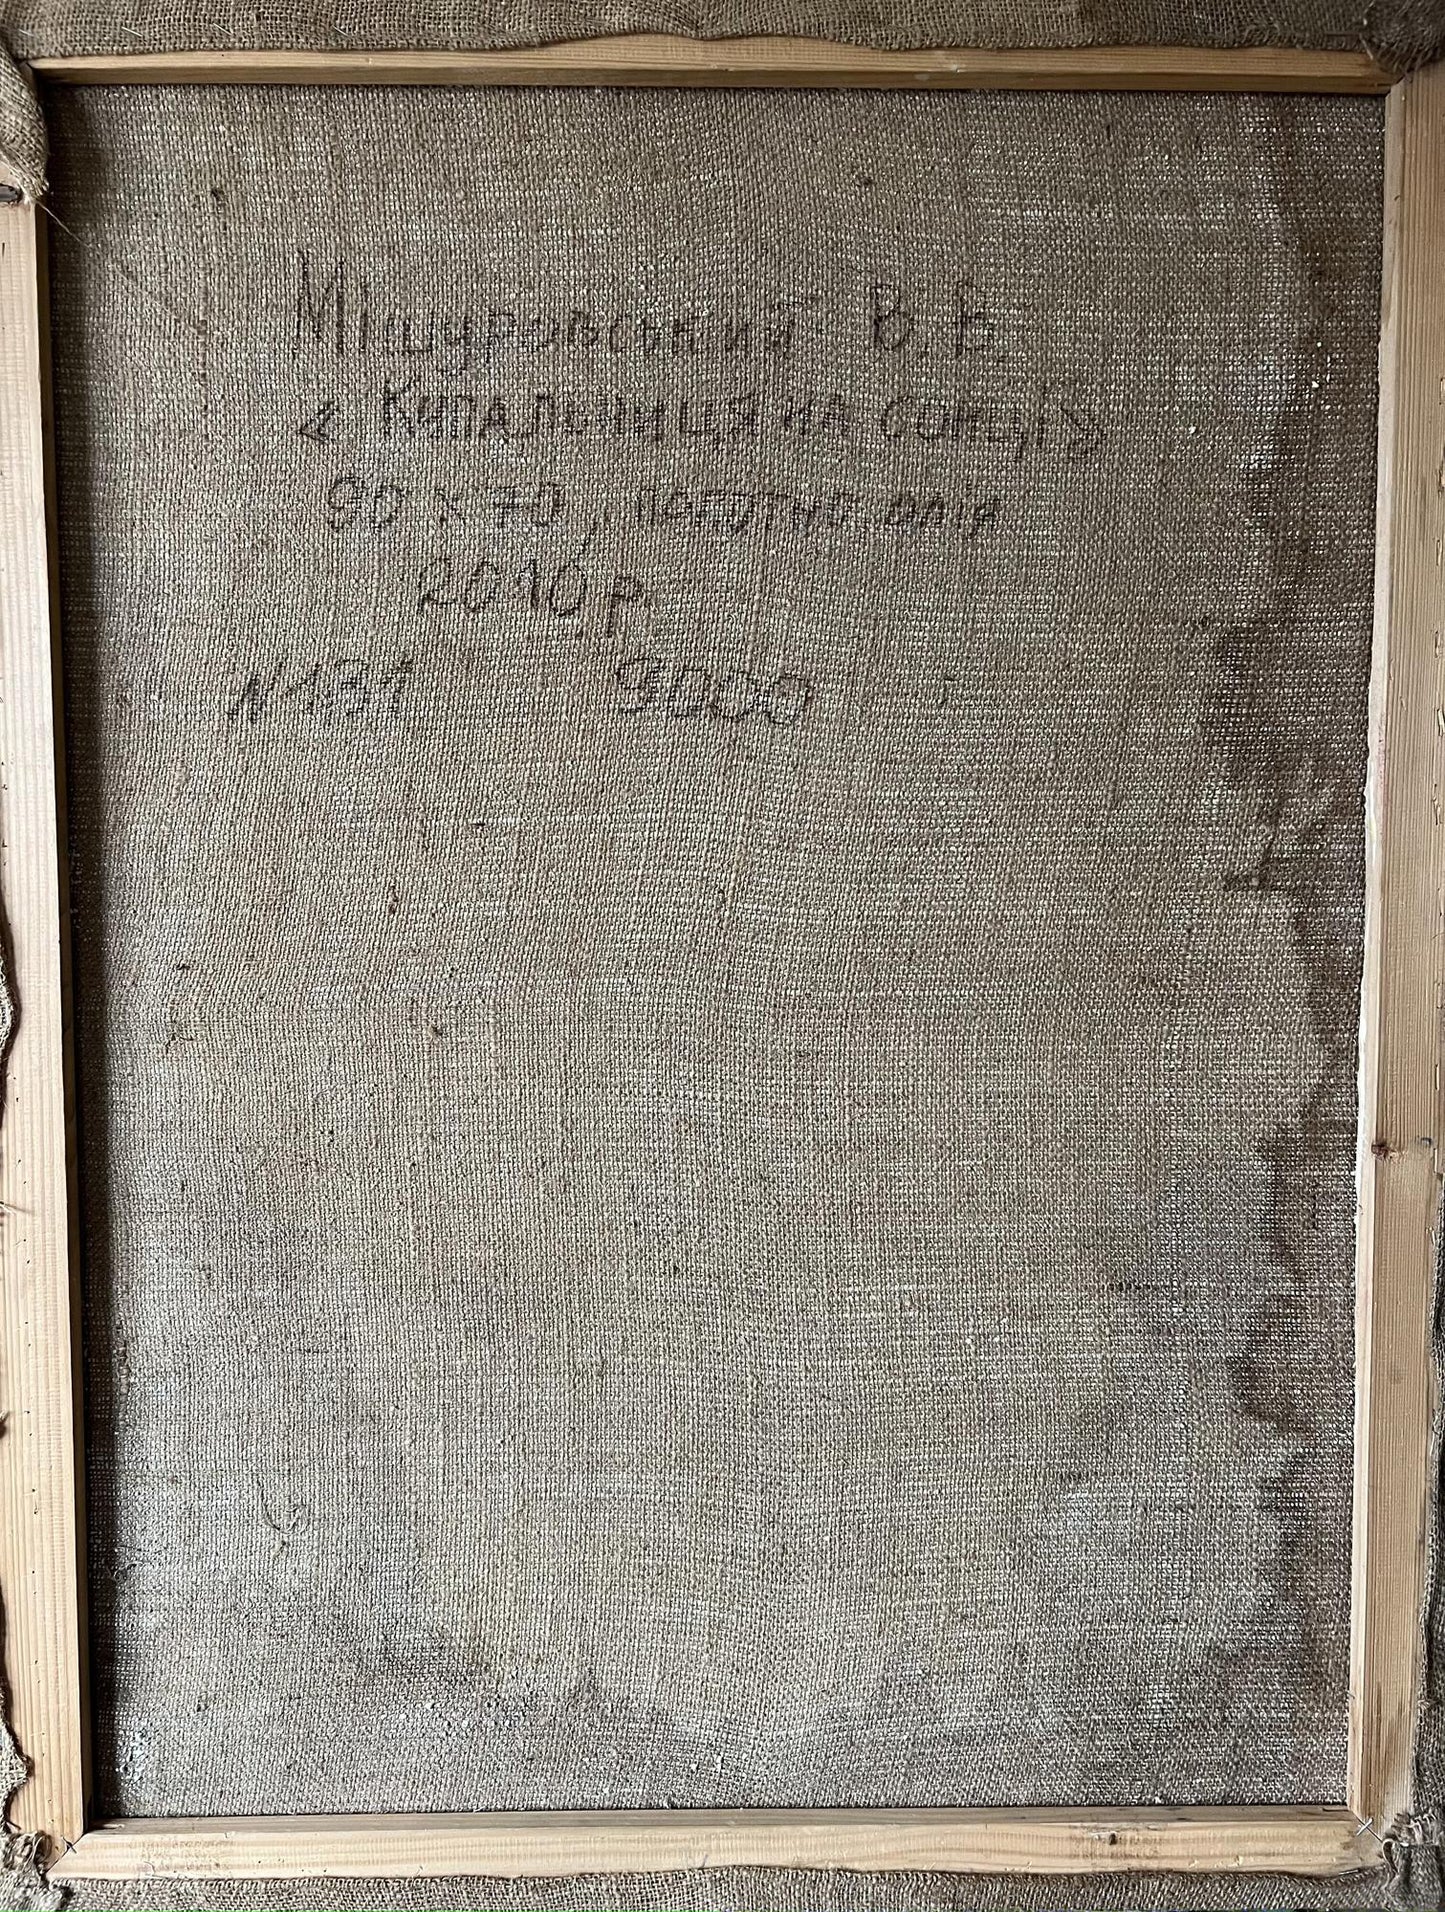 Мішуровський В.В.
«Купальниця на сонці»
90 х 70, полотно олія
2010 р.
N 131 9000